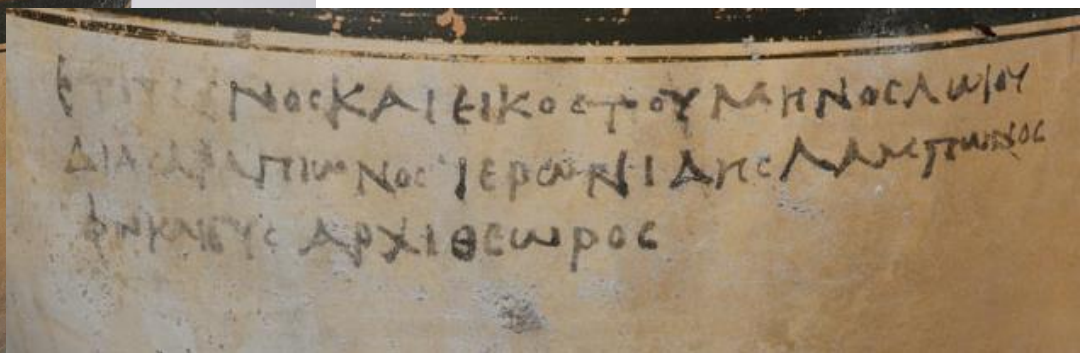 ΝΟϹΚΑΙΕΙΚΟϹΤΟΥΜΗΝΟϹΛΩΙΟΥ
ΔΙΑϹΑΡΑΠΙΩΝΟϹΙΕΡΩΝΙΔΗϹΛΑΜΠΩΝΟϹ
ΦΩΚΑΙΕΥϹ ΑΡΧΙΘΕΩΡΟϹ